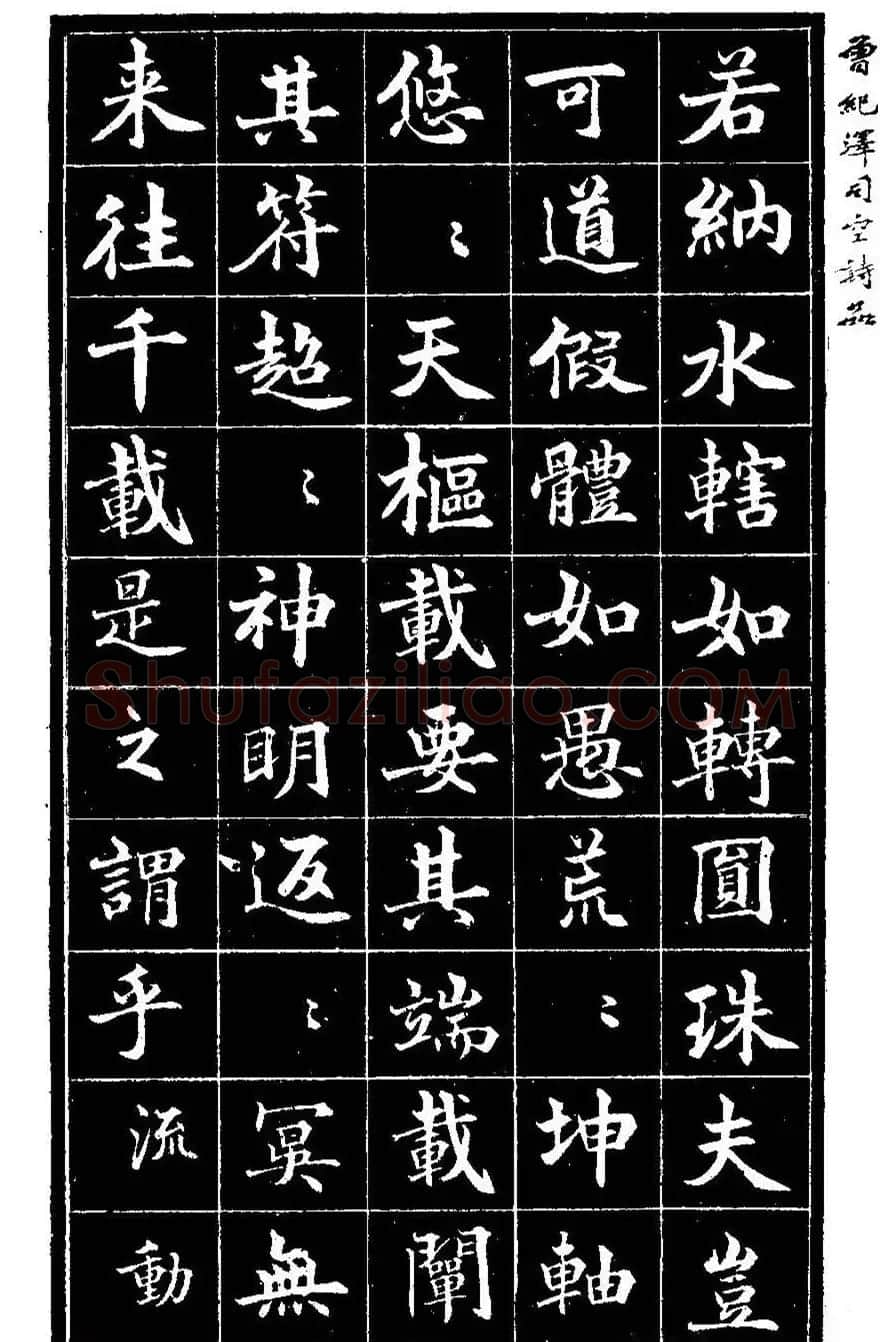 曾紀澤司空詩品
若納水輨如轉圓珠夫豈
可道假體如愚荒〻坤軸
悠〻天樞載要其端載闡
其符超〻神明返〻冥無
来往千載是之謂乎流動
Shufaziliao.COM